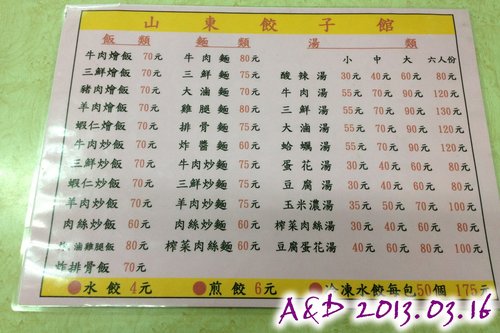 山東餃子館
飯類 麵類 湯類
小 中 大 六人份
牛肉燴飯 70元 牛肉麵 80元
三鮮燴飯 70元 三鮮麵 75元 酸辣湯 30元 40元 60元 80元
豬肉燴飯 70元 大滷麵 70元 牛肉湯 55元 70元 90元 120元
羊肉燴飯 70元 雞腿麵 80元 三鮮湯 55元 70元 90元 130元
蝦仁燴飯 70元 排骨麵 75元 大滷湯 55元 70元 90元 120元
牛肉炒飯 70元 炸醬麵 60元 蛤蠣湯 55元 70元 90元 120元
三鮮炒飯 70元 牛肉炒麵 75元 蛋花湯 30元 40元 60元 80元
蝦仁炒飯 70元 三鮮炒麵 75元 豆腐湯 30元 40元 60元 80元
羊肉炒飯 70元 羊肉炒麵 75元 玉米濃湯 35元 50元 70元 100元
肉絲炒飯 60元 肉絲炒麵 60元 榨菜肉絲湯 30元 40元 60元 80元
滷雞腿飯 80元 榨菜肉絲麵 60元 豆腐蛋花湯 40元 60元 80元 100元
炸排骨飯 70元
水餃 4元 煎餃 6元 冷凍水餃每包50個 175元
A&D 2013.03.16